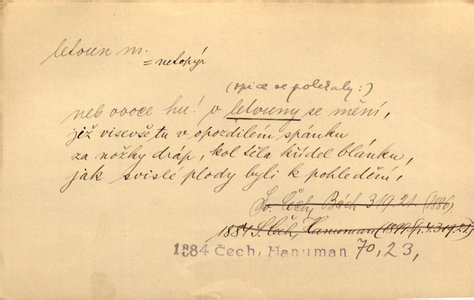 letoun m.
= netopýr
(opice se polekaly:)
neb ovoce hu! v letouny se mění,
již visevše tu v opozdilém spánku
za nožky dráp, kol těla křídel blánku,
jak svislé plody byli k pohledění,
Sv. Čech, Bách 319.21. (1886)
1884 S. Čech, Hanuman
1884 Čech, Hanuman 70,23,